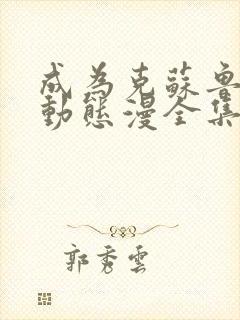 成為克蘇魯
動態漫全集
郭秀雲